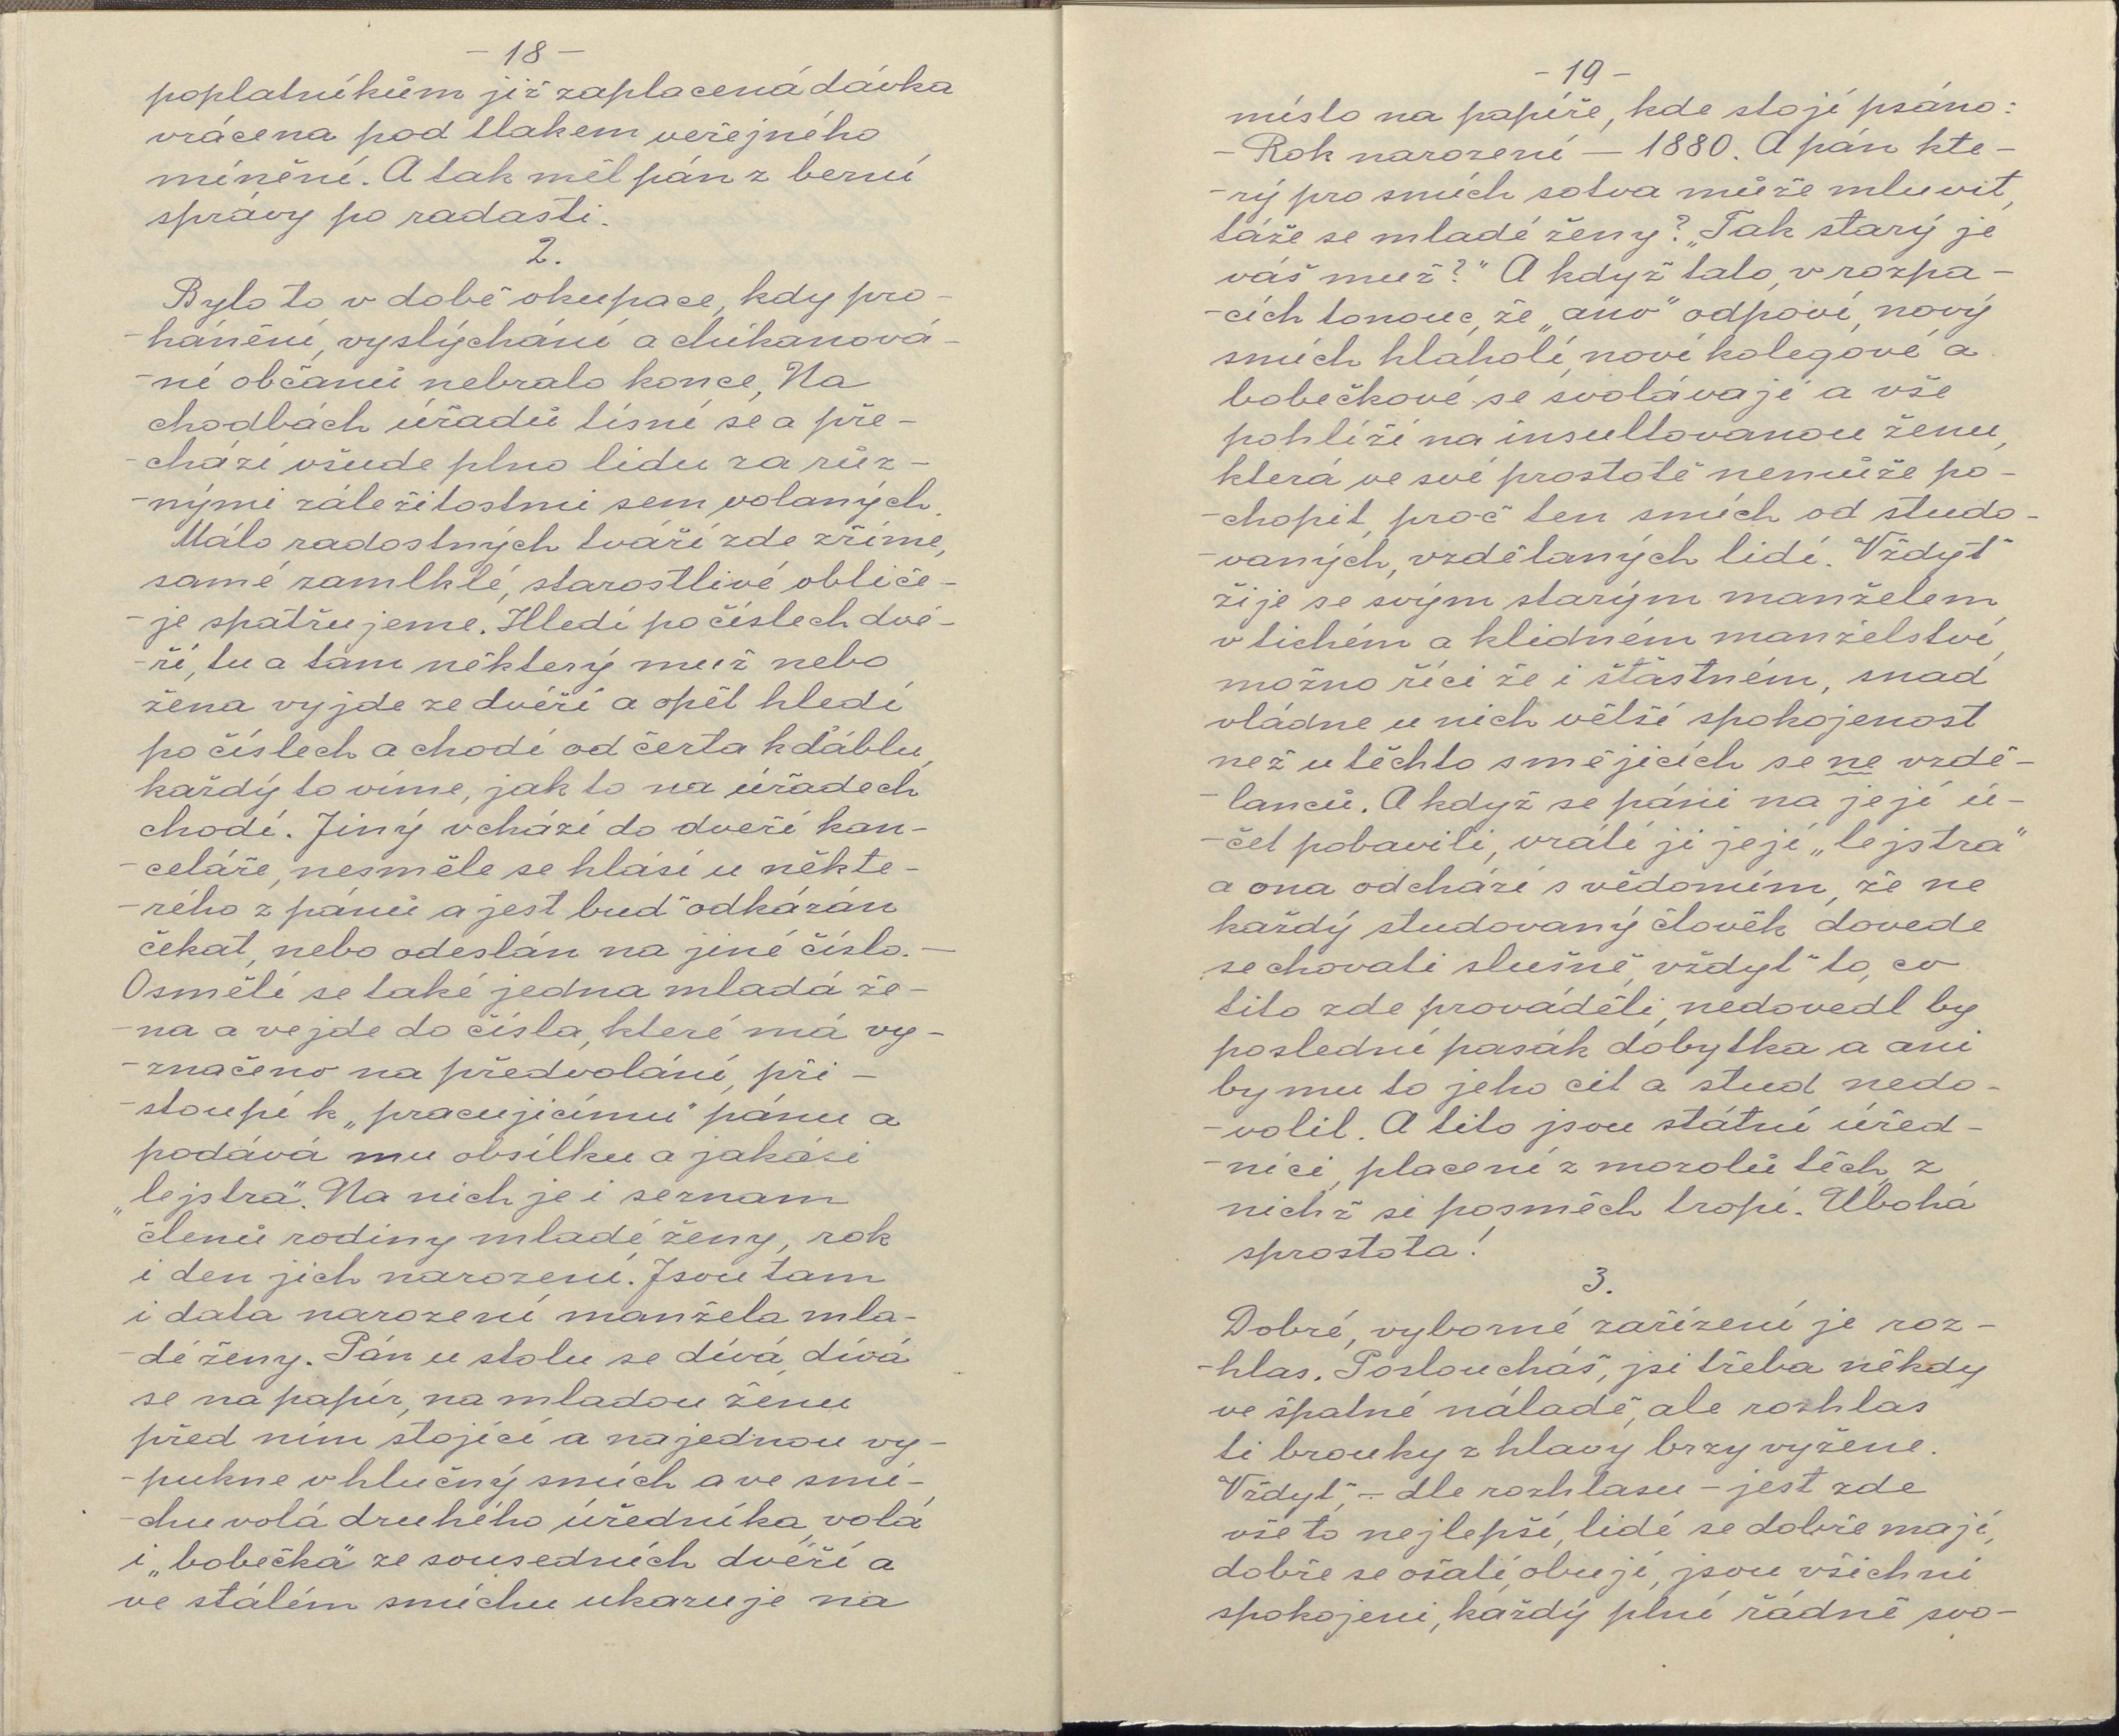 - 18 -
poplatníkům již zaplacená dávka
vrácena pod tlakem veřejného
mínění. A tak měl pán z berní
správy po radasti.
2.
Bylo to v době okupace, kdy pro-
-hánění, vyslýchání a chikanová-
-ní občanů nebralo konce, Na
chodbách úřadů tísní se a pře-
-chází všude plno lidu za růz-
-nými záležitostmi sem volaných.
Málo radostných tváří zde zříme,
samé zamlklé, starostlivé obliče-
-je spatřujeme. Hledí po číslech dve-
-ří, tu a tam některý muž nebo
žena vyjde ze dvéří a opět hledí
po číslech a chodí od čerta k ďáblu,
každý to víme, jak to na úřadech
chodí. Jiný vchází do dveří kan-
-celáře, nesměle se hlásí u někte-
-rého z pánů a jest buď odkázán
čekat, nebo odeslán na jiné číslo. -
Osmělí se také jedna mladá že-
-na a vejde do čísla, které má vy-
-značeno na předvolání, při-
-stoupí k „pracujicímu" pánu a
podává mu obsílku a jakási
„lejstra". Na nich je i seznam
členů rodiny mladé ženy, rok
i den jich narození. Jsou tam
i data narození manžela mla-
-dé ženy. Pán u stolu se dívá, dívá
se na papír, na mladou ženu
před ním stojící a najednou vy-
-pukne v hlučný smích a ve smí-
-chu volá druhého úředníka, volá
i „bobečka" ze sousedních dvéří a
ve stálém smíchu ukazuje na
- 19 -
místo na papíře, kde stojí psáno:
- Rok narození - 1880. A pán kte-
-rý pro smích sotva může mluvit,
táže se mladé ženy? „Tak starý je
váš muž?" A když tato, v rozpa-
-cích tonouc, že „ano" odpoví, nový
smích hlaholí, noví kolegové a
bobečkové se svolávají a vše
pohlíží na insultovanou ženu,
která ve své prostotě nemůže po-
-chopit, proč ten smích od studo-
-vaných, vzdělaných lidí. Vždyť
žije se svým starým manželem
v tichém a klidném manželství,
možno říci že i šťastném, snad
vládne u nich větší spokojenost
než u těchto smějicích se ne vzdě-
-lanců. A když se páni na její ú-
-čet pobavili, vrátí ji její „lejstra"
a ona odchází s vědomím, že ne
každý studovaný člověk dovede
se chovati slušně, vždyť to, co
tito zde prováděli, nedovedl by
poslední pasák dobytka a ani
by mu to jeho cit a stud nedo-
-volil. A tito jsou státní úřed-
-níci, placení z mozolů těch, z
nichž si posměch tropí. Ubohá
sprostota!
3.
Dobré, vyborné zařízení je roz-
-hlas. Posloucháš, jsi třeba někdy
ve špatné náladě, ale rozhlas
ti brouky z hlavy brzy vyžene.
Vždyť, - dle rozhlasu - jest zde
vše to nejlepší, lidé se dobře mají,
dobře se ošatí, obují, jsou všichni
spokojeni, každý plní řádně svo-